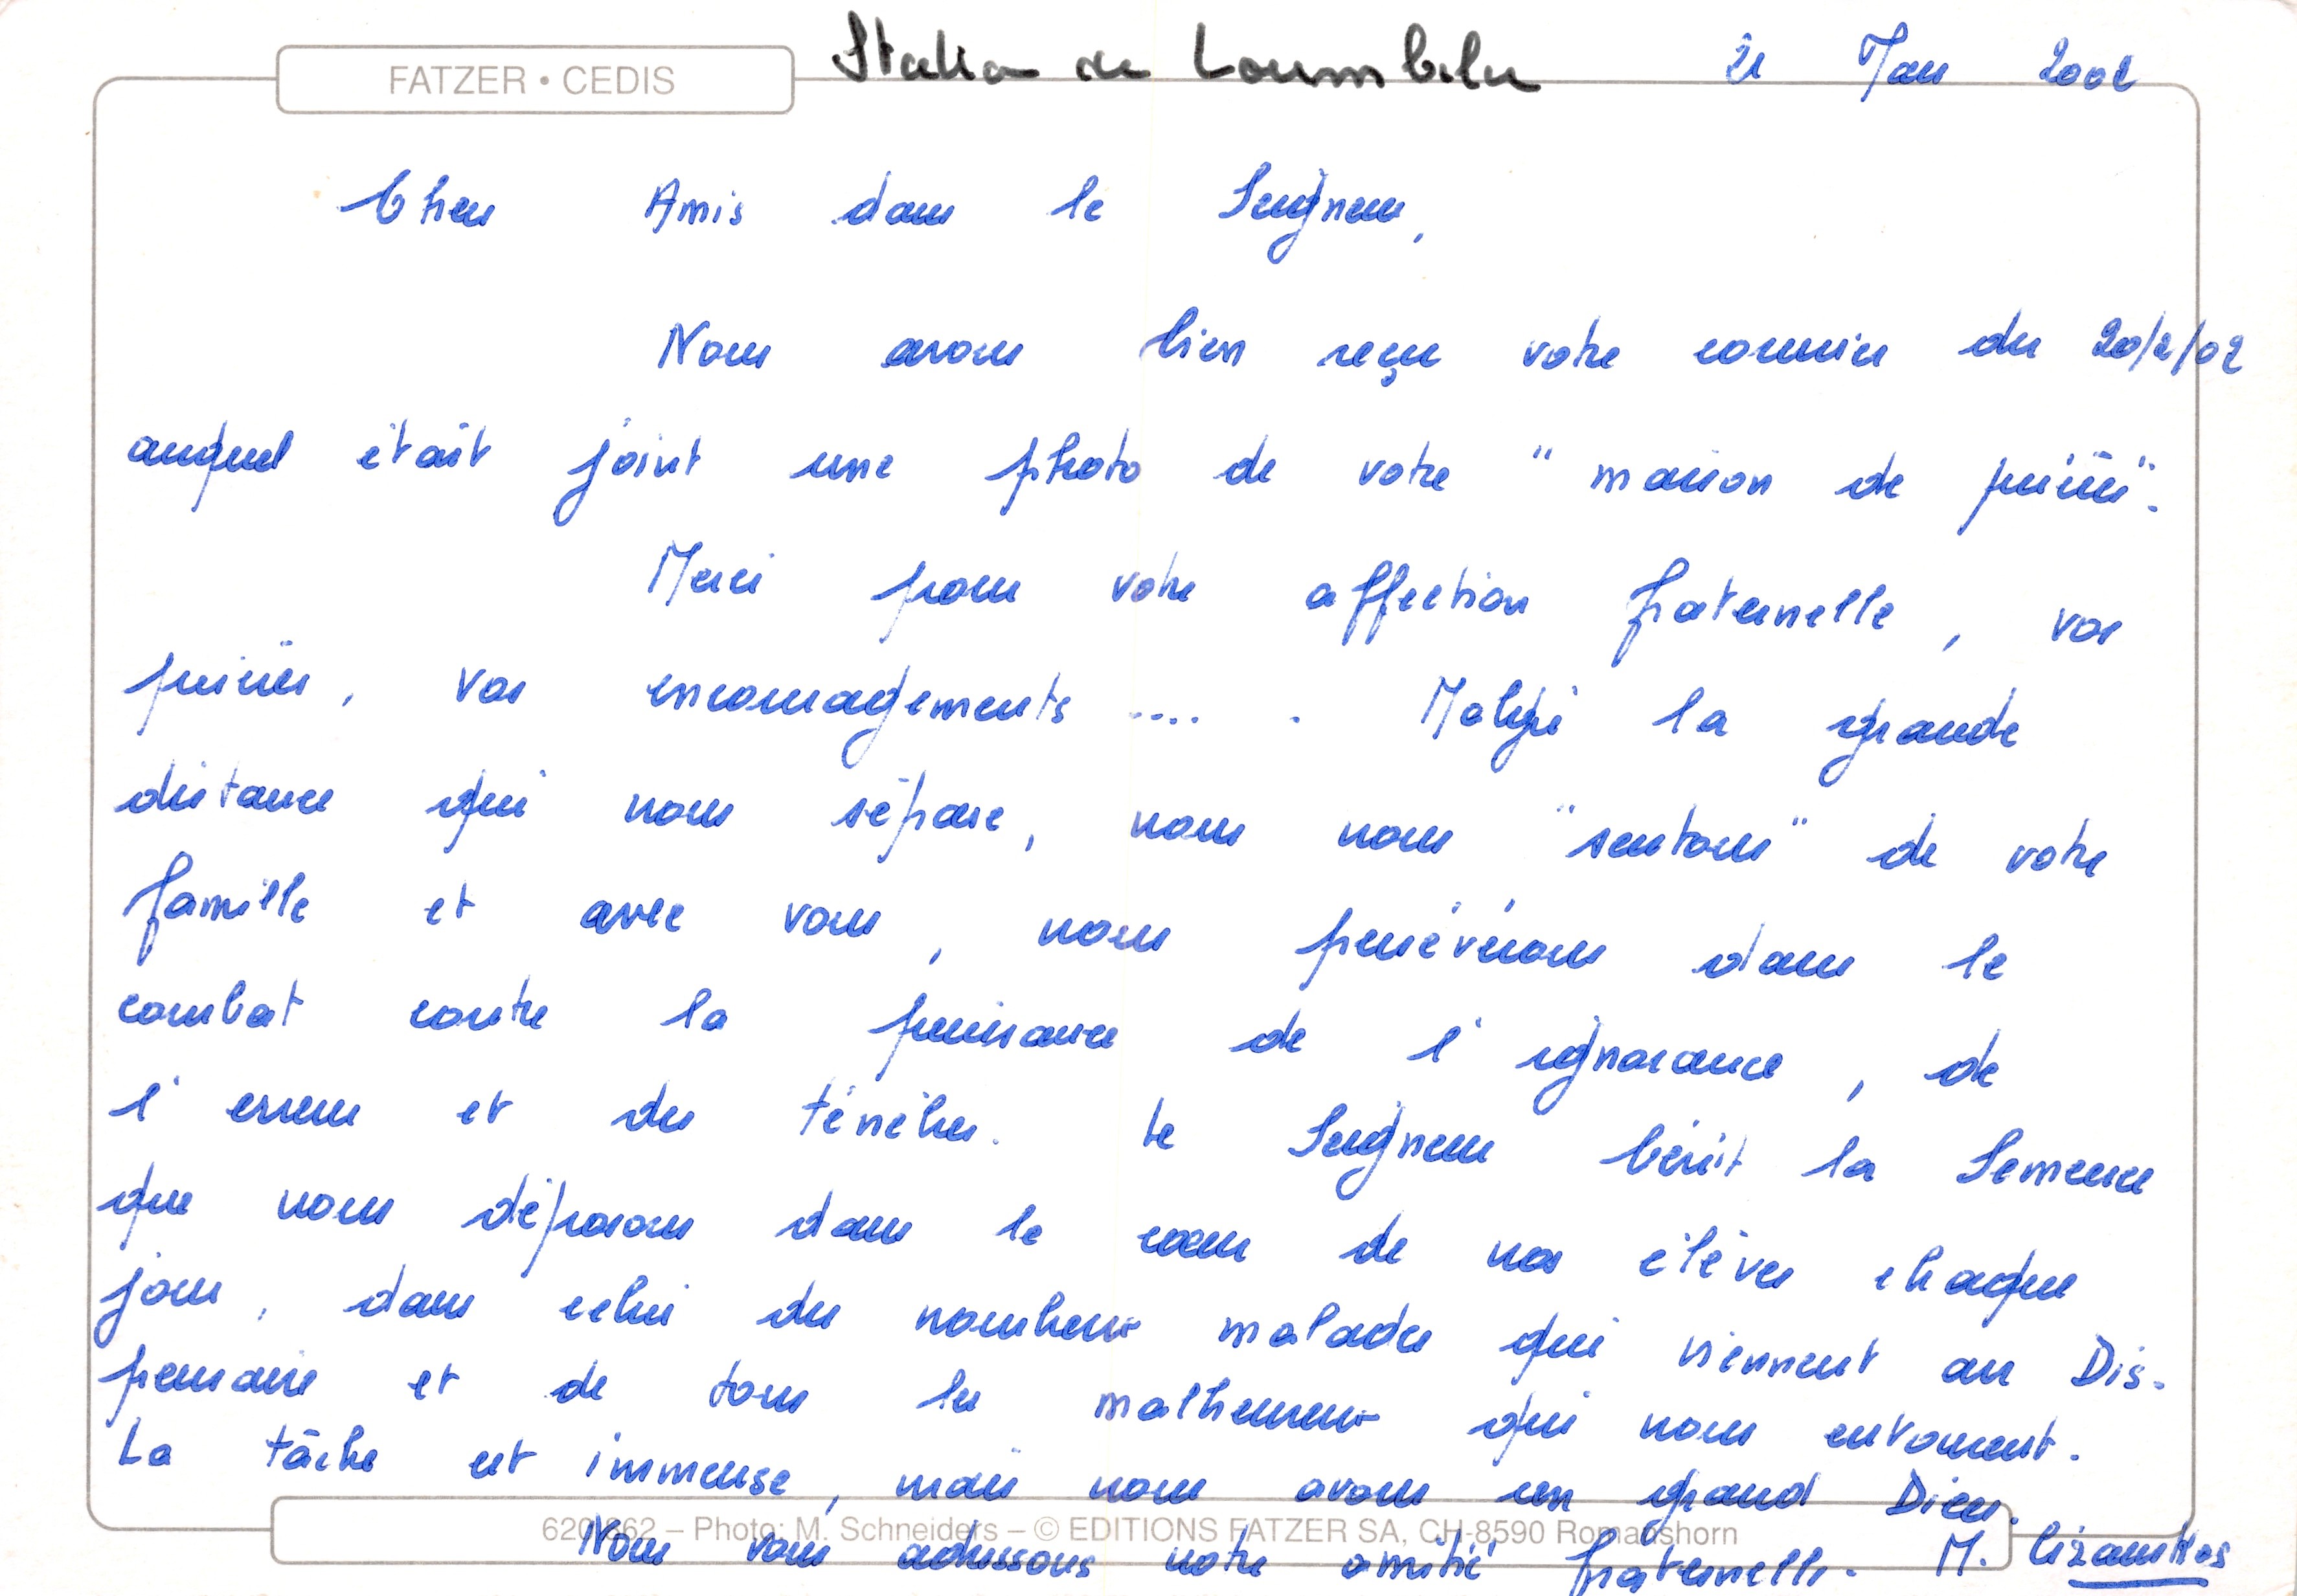 FATZER • CEDIS
Station de Loumbila 21 Mars 2002
Chers Amis dans le Seigneur,
Nous avons bien reçu votre courrier du 20/2/02
auquel était joint une photo de votre "maison de prières".
Merci pour votre affection fraternelle, vos
prières, vos encouragements .... . Malgré la grande
distance qui nous sépare, nous nous "sentons" de votre
famille et avec vous, nous persévérons dans le
combat contre la puissance de l'ignorance, de
l'erreur et des ténèbres. Le Seigneur bénit la Semence
que nous déposons dans le coeur de nos élèves chaque
jour, dans celui des nombreux malades qui viennent au Dis-
pensaire et de tous les malheureux qui nous entourent.
La tâche est immense, mais nous avons un grand Dieu.
620 862 – Photo: M. Schneiders – © EDITIONS FATZER SA, CH-8590 Romanshorn
Nous vous adressons notre amitié fraternelle. M.